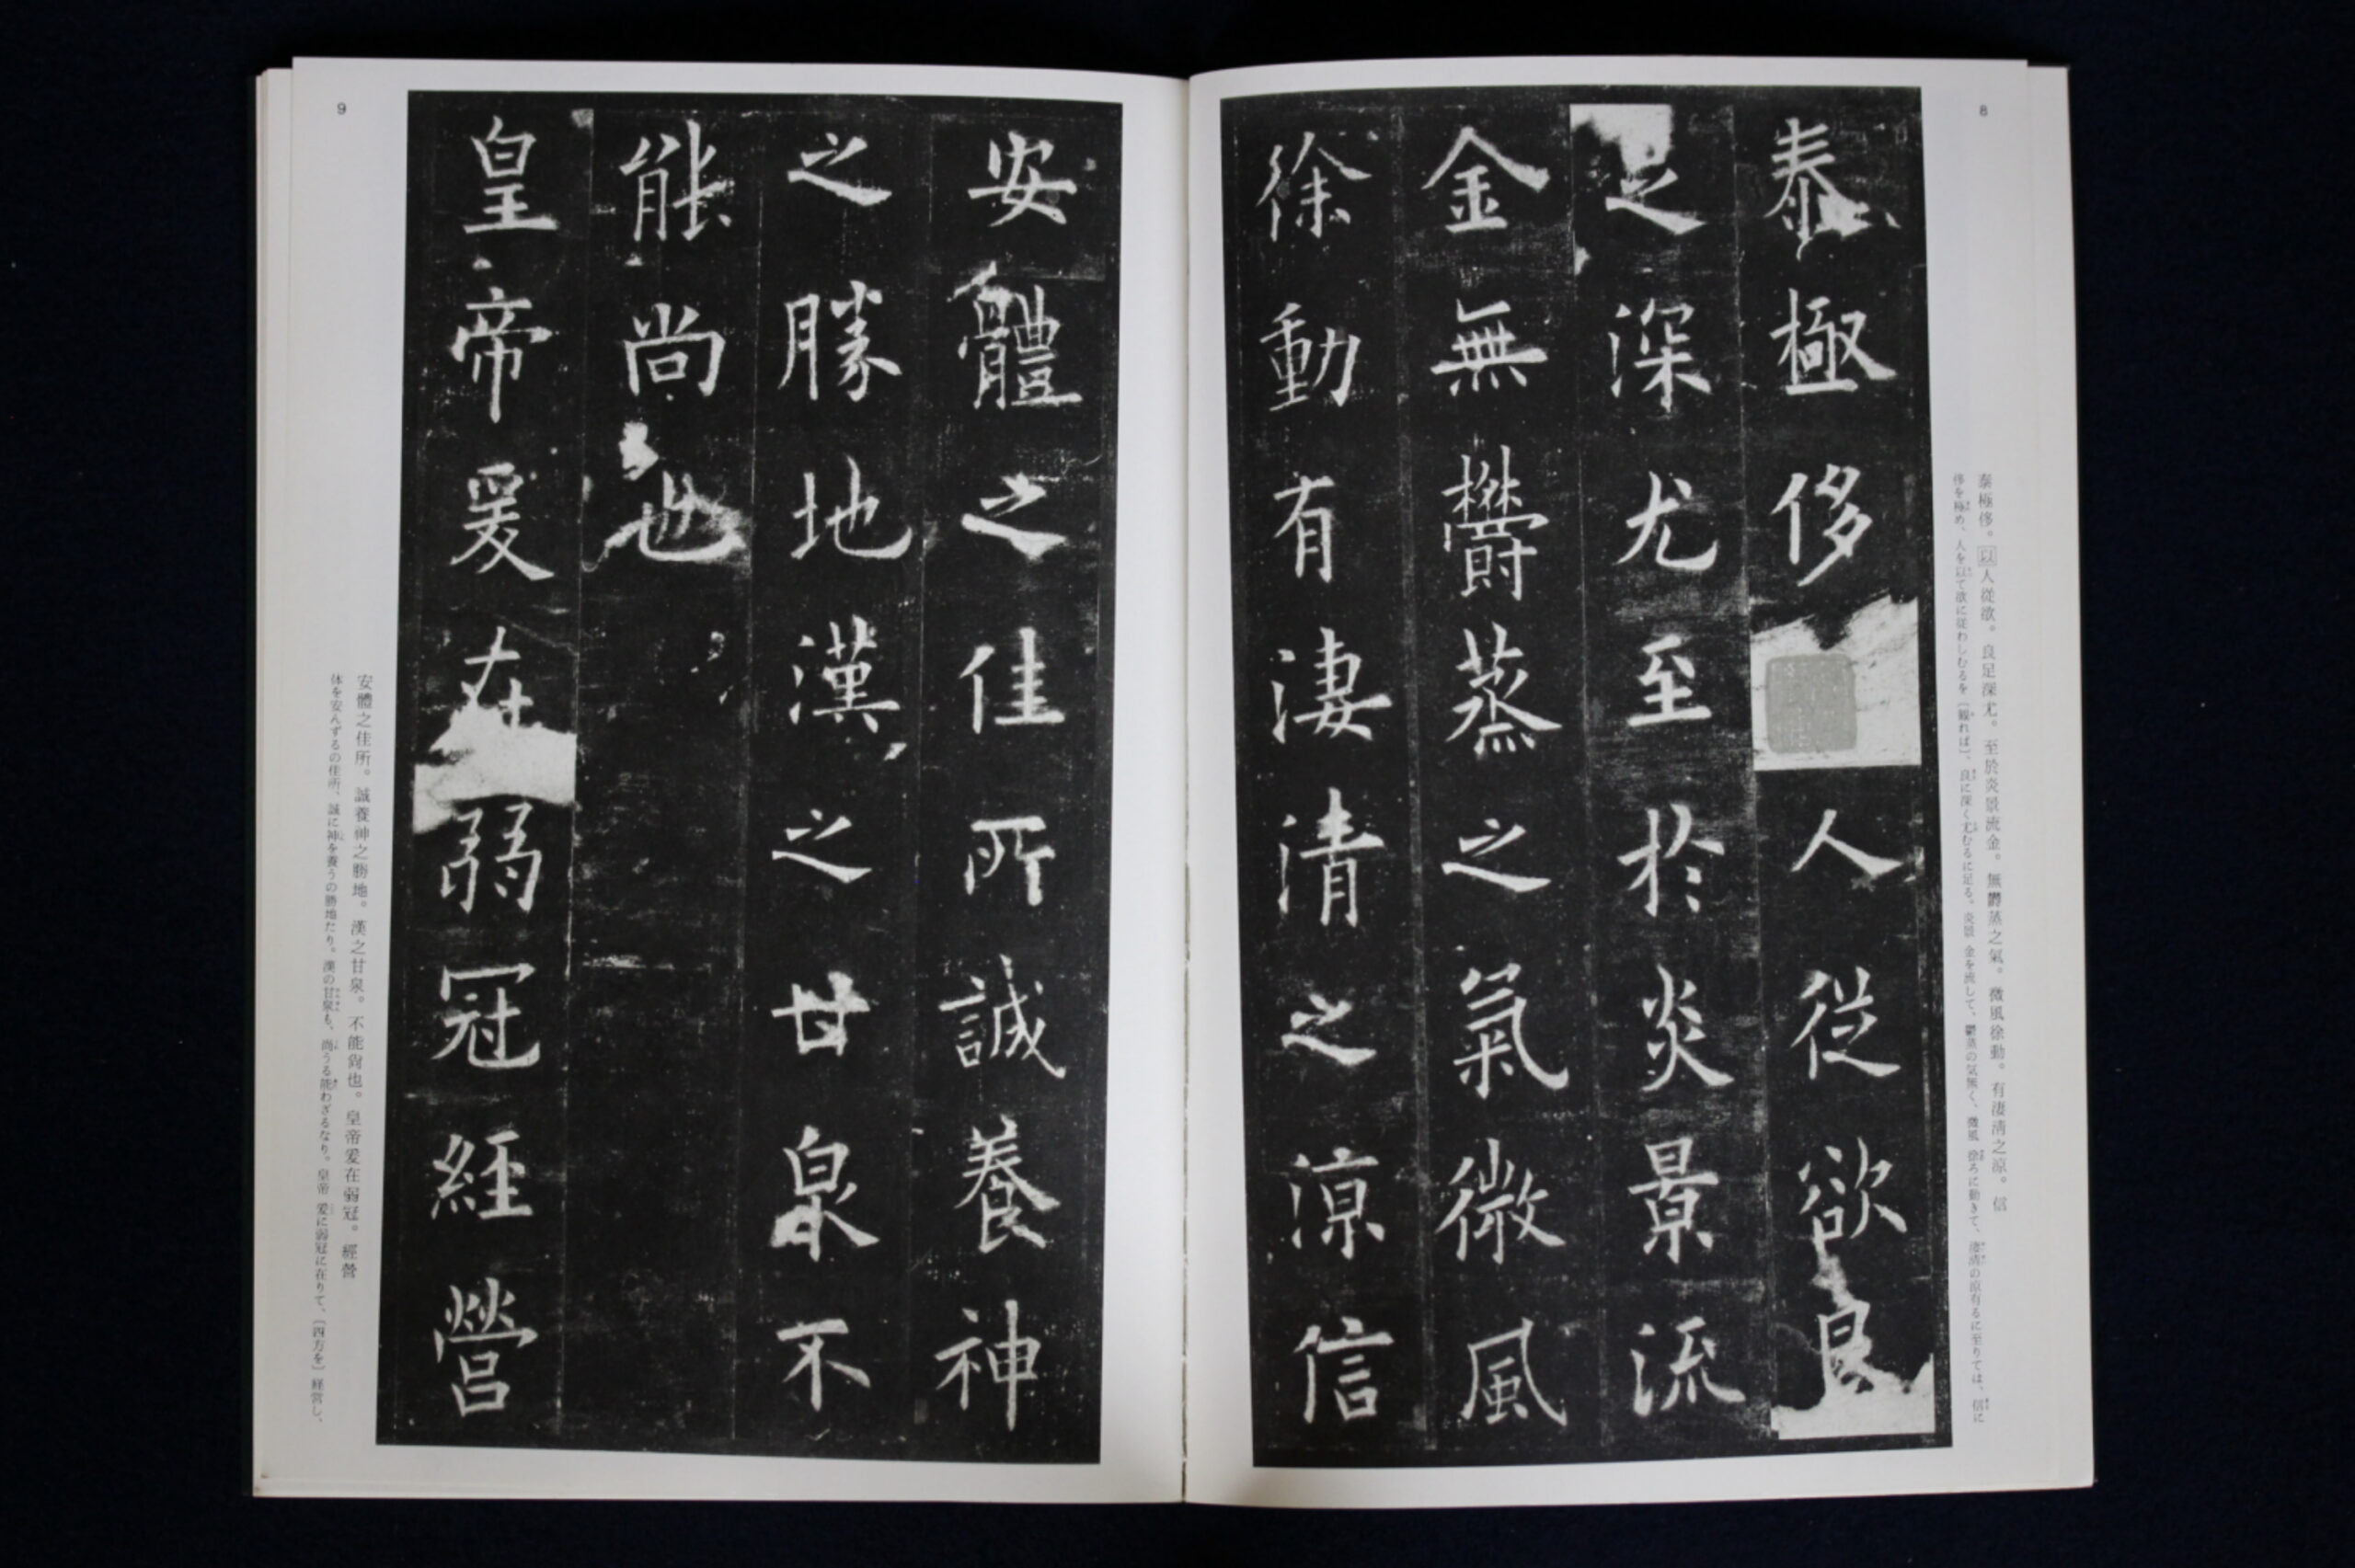 8
泰極侈。以人從欲。良足深尤。至於炎景流金。無欝蒸之氣。微風徐動。有淒清之凉。信
侈を極め、人を以て欲に従わしむるを〔観れば〕、良に深く尤むるに足る。炎景 金を流して、鬱蒸の気無く、微風 徐ろに動きて、凄清の凉有るに至りては、信に
泰極侈人從欲良
足深尤至於炎景流
金無欝蒸之氣微風
徐動有淒清之凉信
安體之佳所誠養神
之勝地漢之甘泉不
能尚也
皇帝爰在弱冠經營
安體之佳所。誠養神之勝地。漢之甘泉。不能尚也。皇帝爰在弱冠。經營
体を安んずるの佳所、誠に神を養うの勝地たり。漢の甘泉も、尚うる能わざるなり。皇帝 爰に弱冠に在りて、〔四方を〕経営し、
9